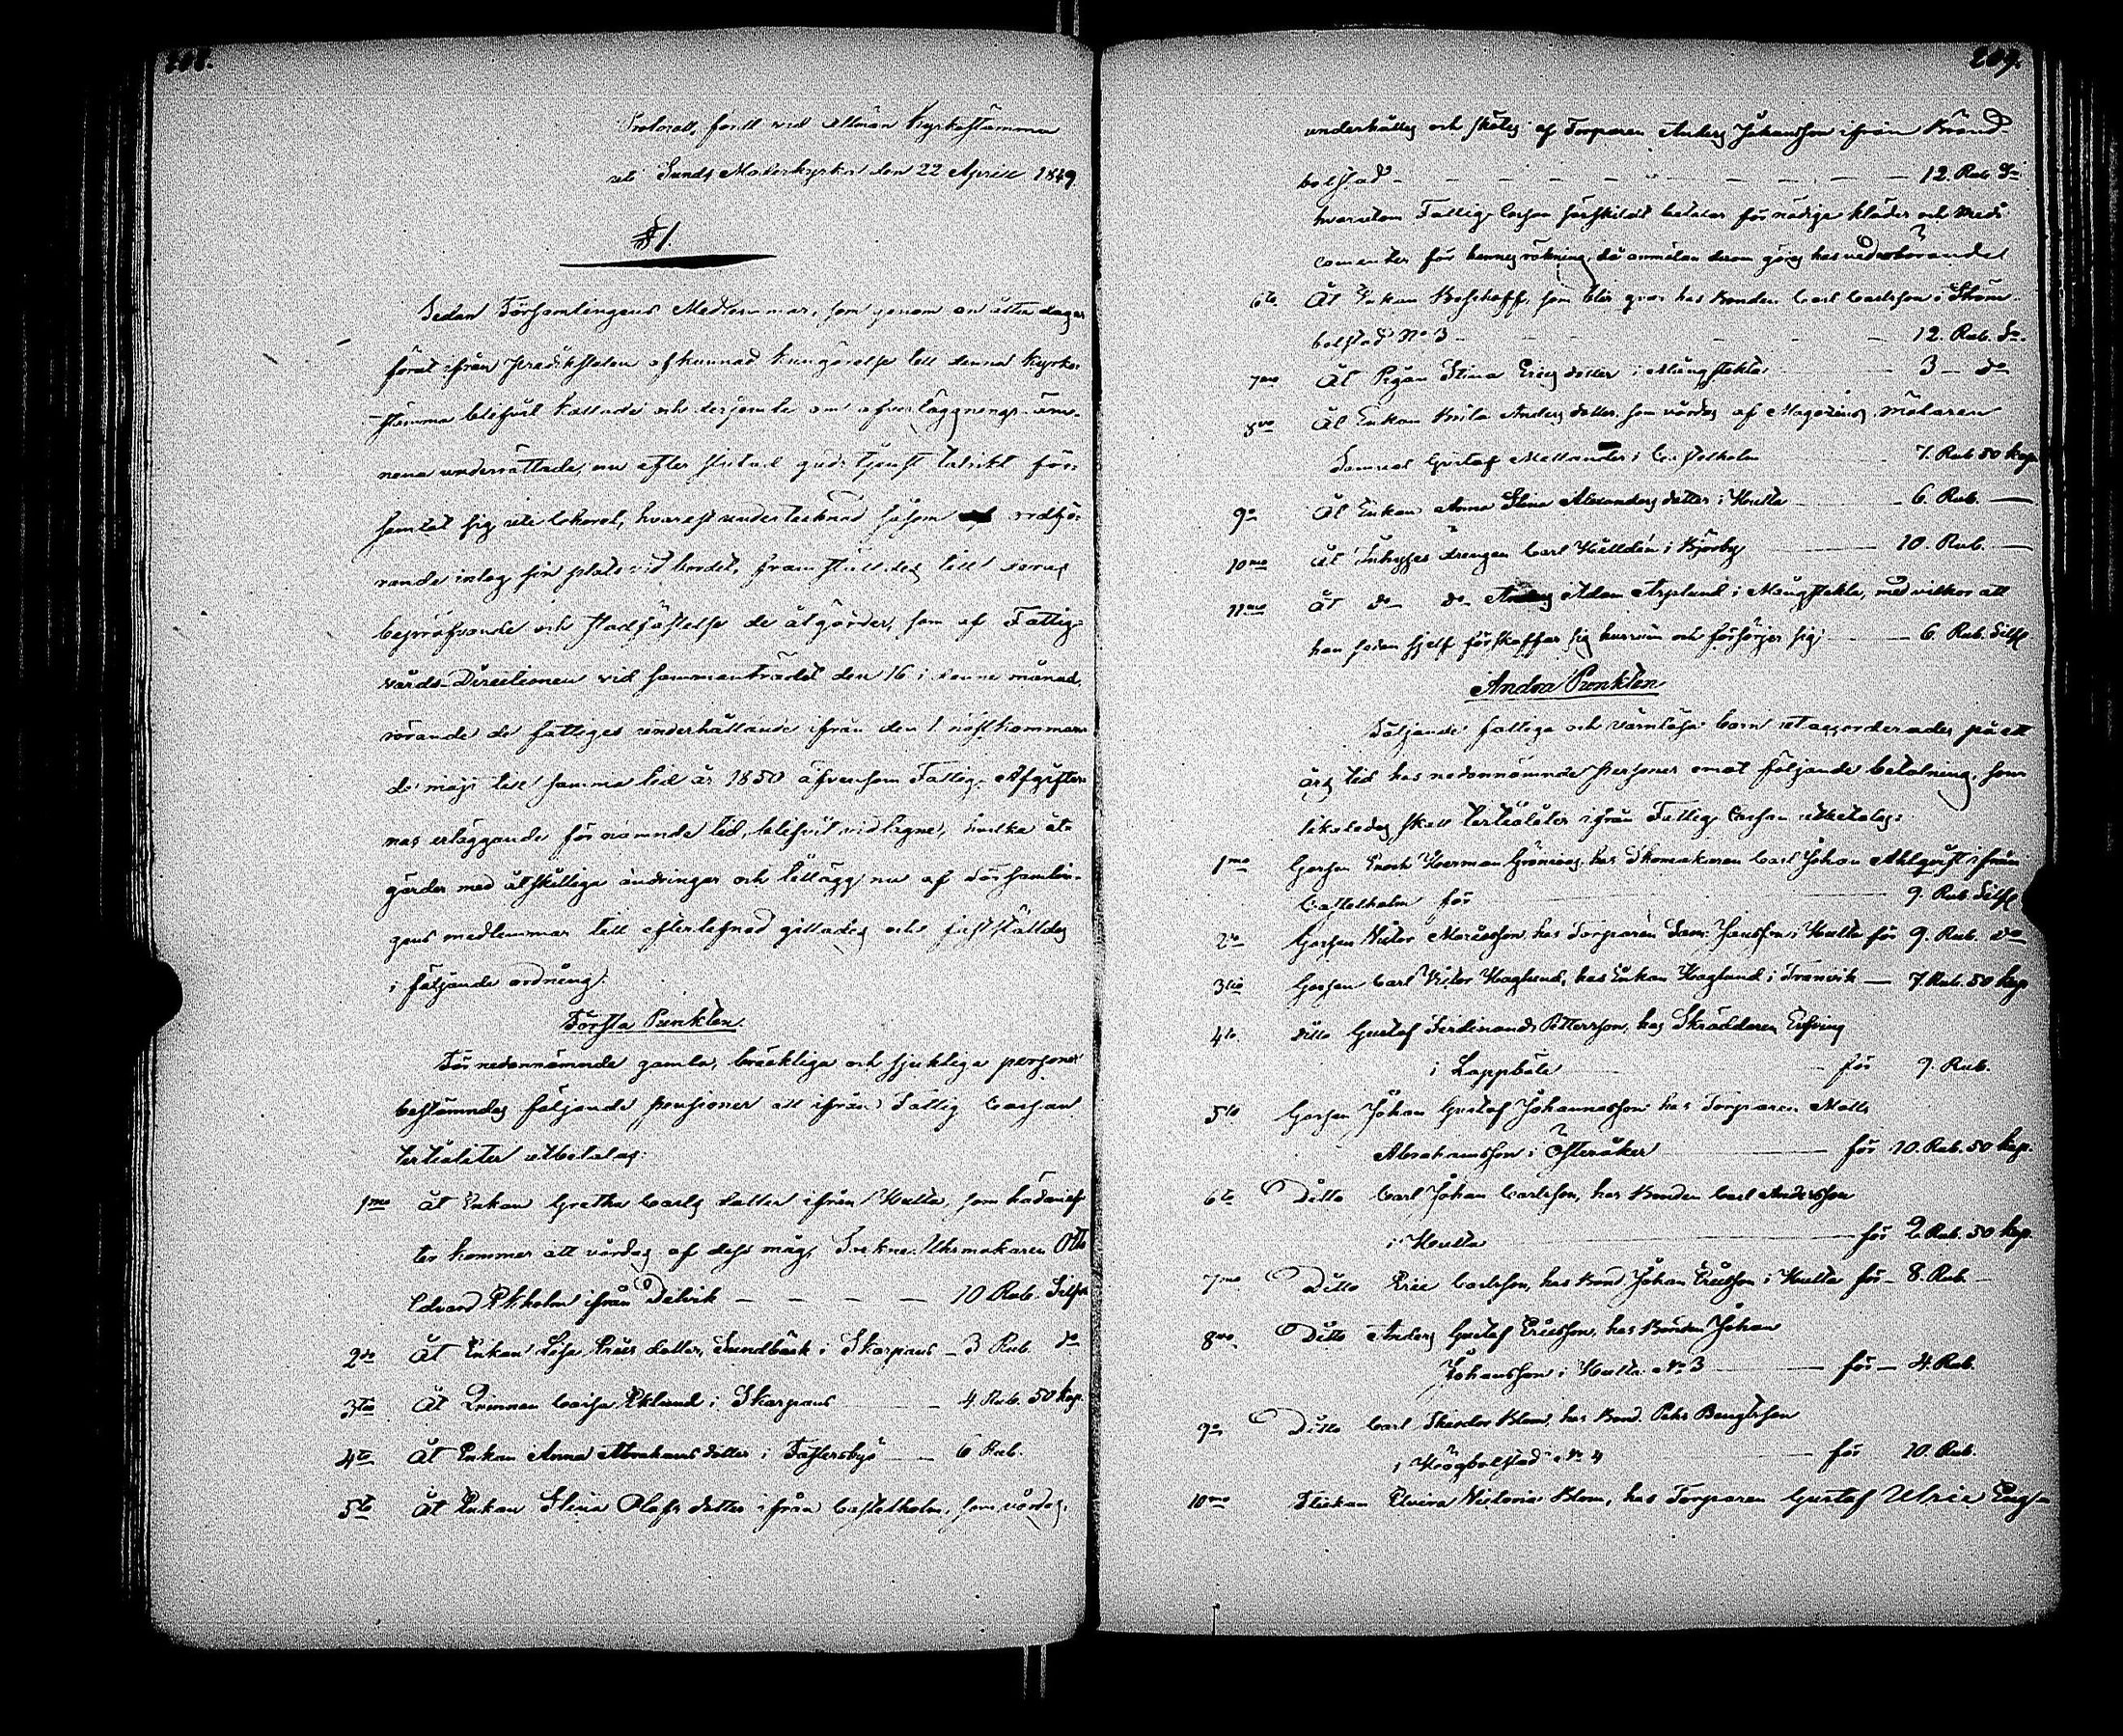 208.
Protocoll, fördt vid allmän Kyrkostämma
uti Sunds Moderkyrka den 22 Aprill 1849.
§ 1.
Sedan Församlingens Medlemmar, som genom en åtta dagar
förut ifrån predikstolen afkunnad kungörelse till denna Kyrko-
stämma blifvit kallade och derjemte om öfverläggnings-äm-
nena underrättade, nu efter slutad gudstjenst talrikt för-
samlat sig uti Choret, hvarest undertecknad såsom ordfö-
rande intog sin plats vid bordet, framställdes till deras
bepröfvande och stadfästelse de åtgärder, som af Fattig-
vårds-Directionen vid sammanträdet den 16 i denne månad,
rörande de fattiges underhållande ifrån den 1 nästkomman-
de maji till samma tid år 1850 äfvensom Fattig-Afgifter-
nas erläggande för nämnde tid, blifvit vidtagne, hvilka åt-
gärder med åtskillige ändringar och tillägg nu af Församlin-
gens medlemmar till efterlefnad gillades och fastställdes
i följande ordning:
Första Punkten.
För nedannämnde gamla, bräckliga och sjukliga personer
bestämdes följande pensioner att ifrån Fattig Cassan
tertialiter utbetalas:
1mo Åt Enkan Gretha Carls dotter ifrån Hulta, som hädanef-
ter kommer att vårdas af dess måg, Sockne Uhrmakaren Otto
Edvard Ekholm ifrån Delvik — — — — 10 Rub. Silfr
2do Åt Enkan Lisa Erics dotter, Sundbäck i Skarpans — 3 Rub. do
3tio Åt Qvinnan Caisa Eklund i Skarpans — 4 Rub. 50 kop.
4to Åt Enkan Anna Abrahams dotter i Fastersby — 6 Rub.
5to Åt Enkan Stina Olofs dotter ifrån Castelholm, som vårdas,
209.
underhålles och skötes af Torparen Anders Johansson ifrån Bränd-
bolstad — — — — — 12. Rub. So.
hvarutom Fattig-Cassan särskildt betalar för nödige kläder och medi-
camenter för hennes räkning, då anmälan derom göres hos vederbörande
6to Åt Enkan Boschoff, som blir qvar hos Bonden Carl Carlsson i Ström-
bolstad No 3 — — — 12. Rub. So.
7mo Åt Pigan Stina Erics dotter i Mångstekta — 3 — do
8vo Åt Enkan Brita Anders dotter, som vårdas af Magazins mätaren
Samuel Gustaf Mellander i Castelholm — 7. Rub. 50 kop
9o Åt Enkan Anna Stina Alexanders dotter i Hulta — 6. Rub. —
10mo Åt Inhyses drengen Carl Hälldin i Björby — 10. Rub. —
11mo Åt do do Adam Asplund i Mångstekta, med vilkor att
han sedan sjelf förskaffar sig husrum och försörjer sig; — 6. Rub. Silfr
Andra Punkten.
Följande fattiga och värnlösa barn utaccorderades på ett
års tid hos nedannämnde personer emot följande betalning, som
likaledes skall tertialiter ifrån Fattig Cassan utbetalas:
1mo Gossen Enoch Herman Grönvas, hos Skomakaren Carl Johan Ahlqvist ifrån
Castelholm för — 9. Rub. Silfr
2do Gossen Victor Mariæson, hos Torparen Sam. Jansson i Hulta för 9. Rub. do
3tio Gossen Carl Victor Haglund, hos Enkan Haglund i Tranvik — 7. Rub. 50 kop
4to Ditto Gustaf Ferdinand Pettersson, hos Skräddaren Erfving
i Lappböle — för 9. Rub.
5to Gossen Johan Gustaf Johannesson hos Torparen Matts
Abrahamsson i Österåker — för 10. Rub. 50 kop.
6to Ditto Carl Johan Carlsson, hos Bonden Carl Andersson
i Hulta — för 2 Rub. 50 kop.
7mo Ditto Eric Carlsson, hos Bond. Johan Ericsson i Hulta för — 8. Rub. —
8vo Ditto Anders Gustaf Ericsson, hos Bonden Johan
Johansson i Hulta No 3 — för — 4. Rub.
9o Ditto Carl Theodor Blom, hos Bond. Pehr Bengtsson
i Högbolstad No 4 — för 10. Rub.
10mo Flickan Elvira Victoria Blom, hos Torparen Gustaf Ulric Eng-